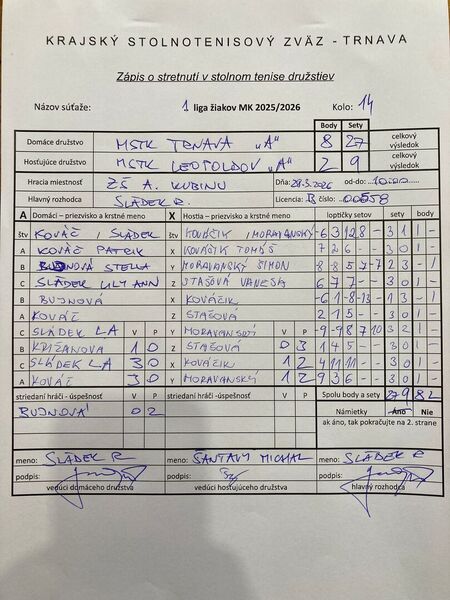 KRAJSKÝ STOLNOTENISOVÝ ZVÄZ - TRNAVA
Zápis o stretnutí v stolnom tenise družstiev
Názov súťaže: 1 liga žiakov MK 2025/2026 Kolo: 14
Body Sety
Domáce družstvo MSTK TRNAVA „A" 8 27 celkový výsledok
Hosťujúce družstvo MSTK LEOPOLDOV „A" 2 9 celkový výsledok
Hracia miestnosť ZŠ A. KUBINU Dňa: 28.3.2026 od-do: 10:00
Hlavný rozhodca SLÁDEK R. Licencia: B číslo: 00558
A Domáci – priezvisko a krstné meno X Hostia – priezvisko a krstné meno loptičky setov sety body
štv KOVÁČ / SLÁDEK štv KOVÁČIK / MORAVANSKÝ -6 3 12 8 - 3 1 1 -
A KOVÁČ PATRIK X KOVÁČIK TOMÁŠ 7 2 6 - - 3 0 1 -
B BUJNOVÁ STELLA Y MORAVANSKÝ ŠIMON 8 -8 5 -7 -7 2 3 - 1
C SLÁDEK LILY ANN Z STAŠOVÁ VANESA 6 7 7 - - 3 0 1 -
B BUJNOVÁ X KOVÁČIK -6 1 -8 -13 - 1 3 - 1
A KOVÁČ Z STAŠOVÁ 2 1 5 - - 3 0 1 -
C SLÁDEK LA V P Y MORAVANSKÝ V P -9 -9 8 7 10 3 2 1 -
B KRIŽANOVA 1 0 Z STAŠOVÁ 0 3 1 4 5 - - 3 0 1 -
C SLÁDEK LA 3 0 X KOVÁČIK 1 2 4 11 11 - - 3 0 1 -
A KOVÁČ 3 0 Y MORAVANSKÝ 1 2 9 3 6 - - 3 0 1 -
striedaní hráči - úspešnosť V P striedaní hráči - úspešnosť V P Spolu body a sety 27 9 8 2
BUJNOVÁ 0 2 Námietky Áno Nie
ak áno, tak pokračujte na 2. strane
meno: SLÁDEK R meno: ŠANTAVÝ MICHAL meno: SLÁDEK R
podpis: podpis: podpis:
vedúci domáceho družstva vedúci hosťujúceho družstva hlavný rozhodca